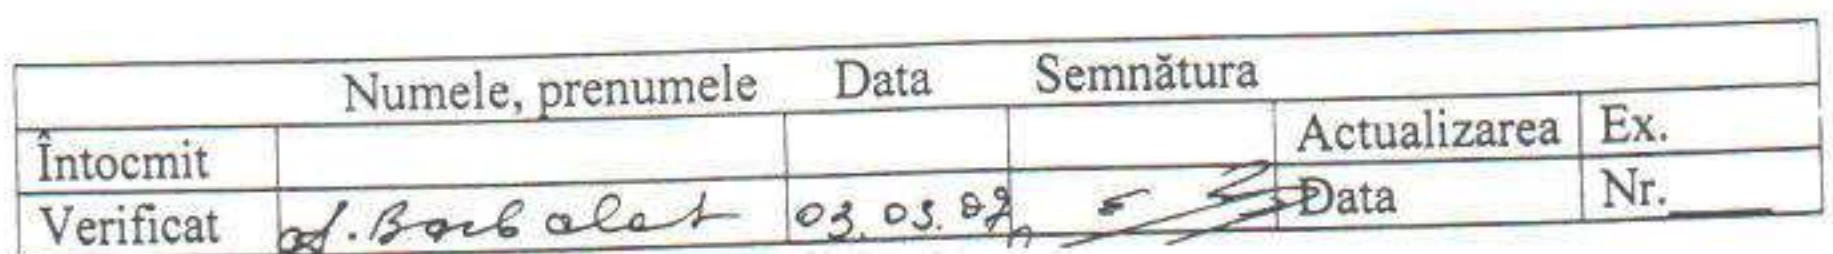 Numele, prenumele Data Semnătura
Întocmit Actualizarea Ex.
Verificat Barbalat 03.03. Data Nr.